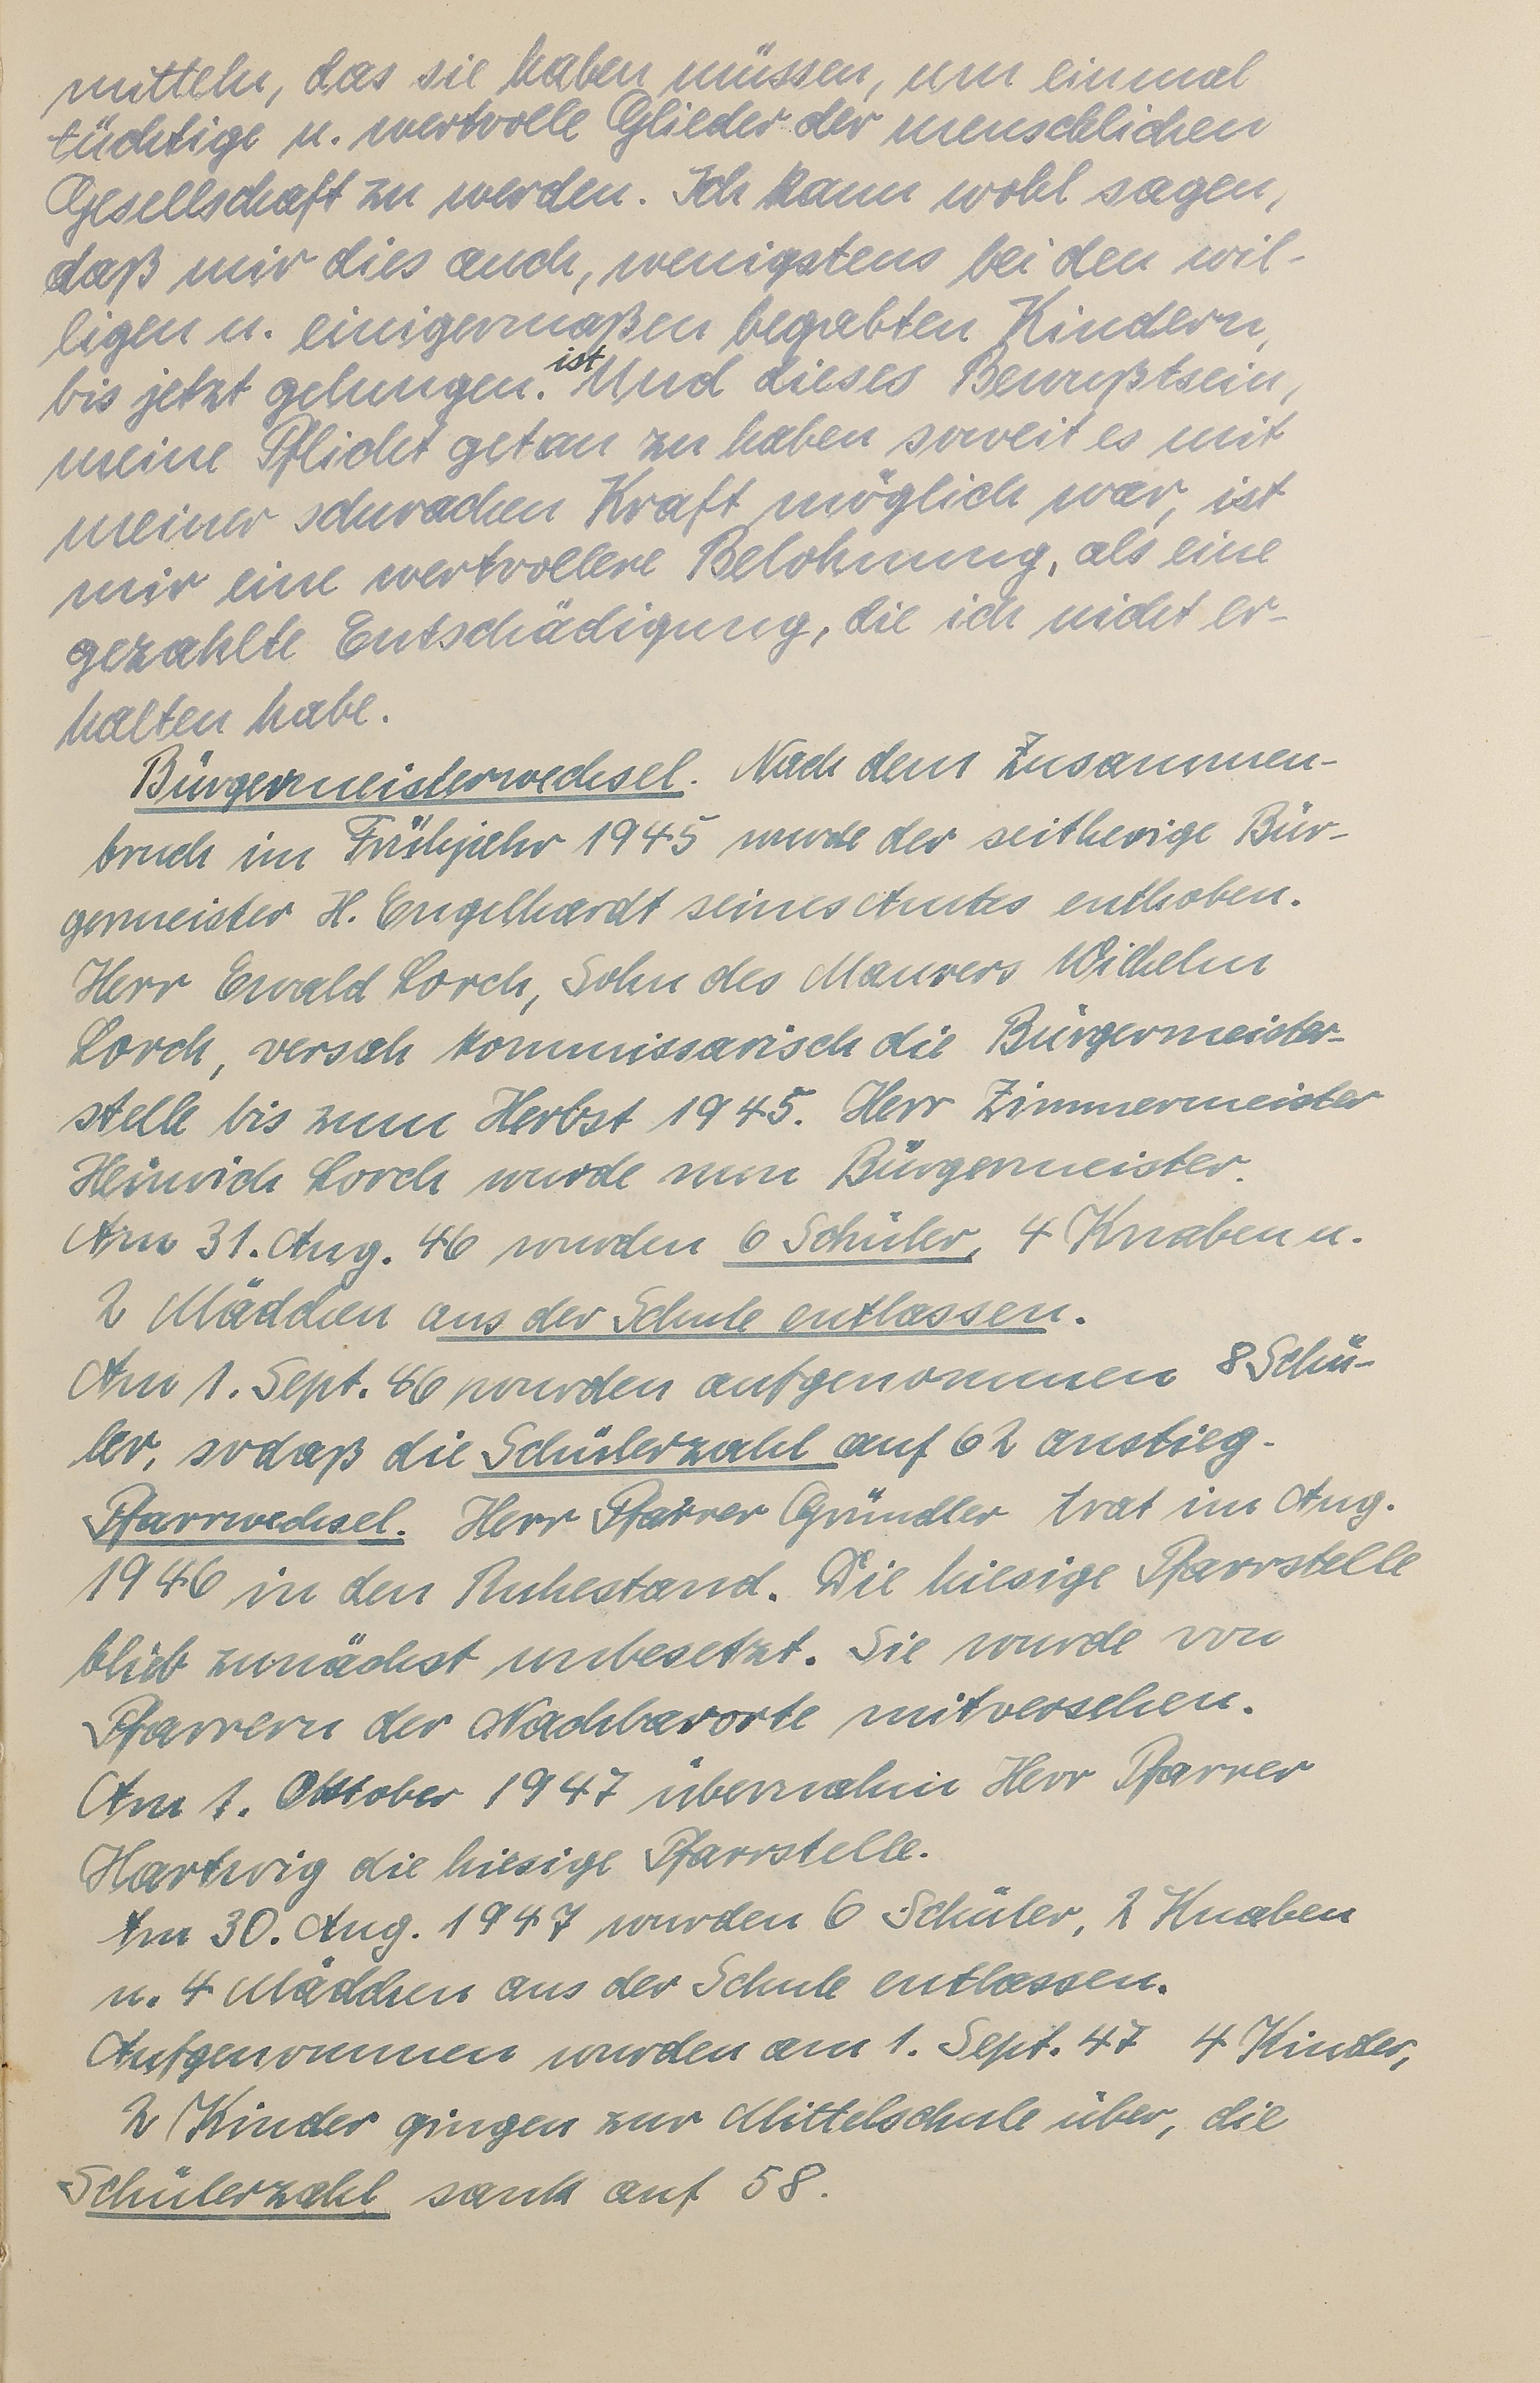 mitteln, das sie haben müssen, um einmal
tüchtige u. wertvolle Glieder der menschlichen
Gesellschaft zu werden. Ich kann wohl sagen,
daß mir dies auch, wenigstens bei den wil-
ligen u. einigermaßen begabten Kindern,
bis jetzt gelungen. ist Und dieses Bewußtsein,
meine Pflicht getan zu haben soweit es mit
meiner schwachen Kraft möglich war, ist
mir eine wertvollere Belohnung, als eine
gezahlte Entschädigung, die ich nicht er-
halten habe.
Bürgermeisterwechsel. Nach dem Zusammen-
bruch im Frühjahr 1945 wurde der seitherige Bür-
germeister H. Engelhardt seines Amtes enthoben.
Herr Ewald Lorch, Sohn des Maurers Wilhelm
Lorch, versah kommissarisch die Bürgermeister-
stelle bis zum Herbst 1945. Herr Zimmermeister
Heinrich Lorch wurde nun Bürgermeister.
Am 31. Aug. 46 wurden 6 Schüler, 4 Knaben u.
2 Mädchen aus der Schule entlassen.
Am 1. Sept. 46 wurden aufgenommen 8 Schü-
ler, sodaß die Schülerzahl auf 62 anstieg.
Pfarrwechsel. Herr Pfarrer Gründler trat im Aug.
1946 in den Ruhestand. Die hiesige Pfarrstelle
blieb zunächst unbesetzt. Sie wurde von
Pfarrern der Nachbarorte mitversehen.
Am 1. Oktober 1947 übernahm Herr Pfarrer
Hartwig die hiesige Pfarrstelle.
Am 30. Aug. 1947 wurden 6 Schüler, 2 Knaben
u. 4 Mädchen aus der Schule entlassen.
Aufgenommen wurden am 1. Sept. 47 4 Kinder,
2 Kinder gingen zur Mittelschule über, die
Schülerzahl sank auf 58.